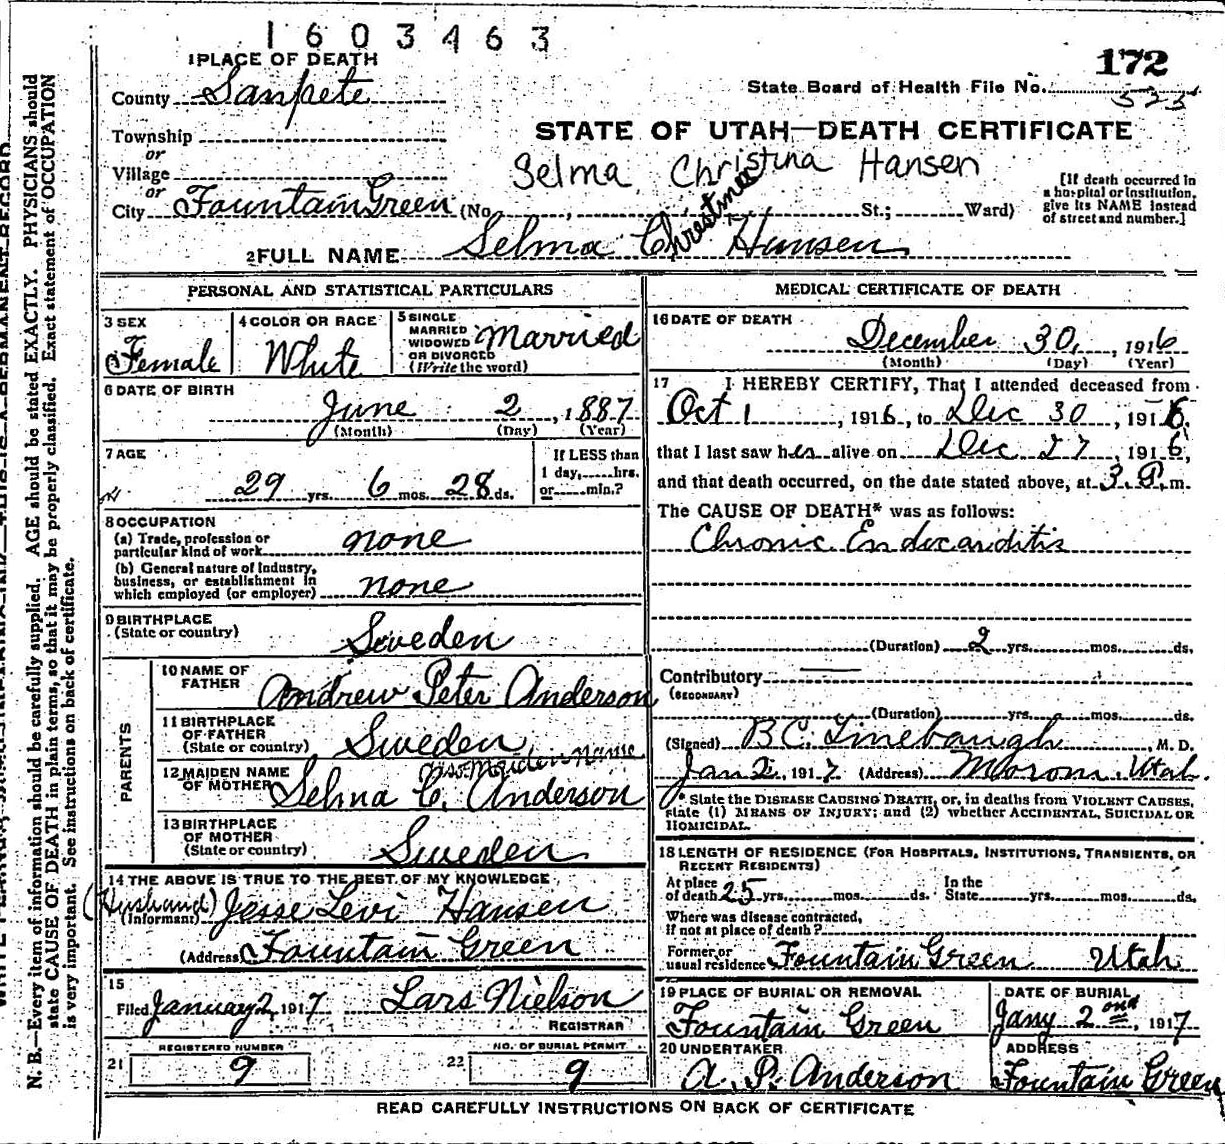 1603463
172
1 PLACE OF DEATH
County Sanpete
State Board of Health File No. 525
Township
or
Village
or
City Fountain Green (No. , St.; Ward)
STATE OF UTAH—DEATH CERTIFICATE
Selma Christina Hansen
[If death occurred in
a hospital or institution,
give its NAME instead
of street and number.]
2 FULL NAME Selma Christina Hansen
PERSONAL AND STATISTICAL PARTICULARS
3 SEX
Female
4 COLOR OR RACE
White
5 SINGLE
MARRIED
WIDOWED
OR DIVORCED
(Write the word)
Married
6 DATE OF BIRTH
June 2, 1887
(Month) (Day) (Year)
7 AGE
29 yrs. 6 mos. 28 ds.
If LESS than
1 day, hrs.
or min.?
8 OCCUPATION
(a) Trade, profession or
particular kind of work none
(b) General nature of industry,
business, or establishment in
which employed (or employer) none
9 BIRTHPLACE
(State or country) Sweden
PARENTS
10 NAME OF
FATHER Andrew Peter Anderson
11 BIRTHPLACE
OF FATHER
(State or country) Sweden
Maiden Name
12 MAIDEN NAME
OF MOTHER Selma C. Anderson
13 BIRTHPLACE
OF MOTHER
(State or country) Sweden
14 THE ABOVE IS TRUE TO THE BEST OF MY KNOWLEDGE
(Husband)
(Informant) Jesse Levi Hansen
(Address) Fountain Green
15
Filed January 2, 1917 Lars Nielson
REGISTRAR
REGISTERED NUMBER
21 9
NO. OF BURIAL PERMIT
22 9
MEDICAL CERTIFICATE OF DEATH
16 DATE OF DEATH
December 30, 1916
(Month) (Day) (Year)
17 I HEREBY CERTIFY, That I attended deceased from
Oct 1, 1916, to Dec 30, 1916,
that I last saw her alive on Dec 27, 1916,
and that death occurred, on the date stated above, at 3 P. m.
The CAUSE OF DEATH* was as follows:
Chronic Endocarditis
(Duration) 2 yrs. mos. ds.
Contributory
(SECONDARY)
(Duration) yrs. mos. ds.
(Signed) B C. Linebaugh, M. D.
Jan 2, 1917 (Address) Moroni, Utah.
* State the DISEASE CAUSING DEATH, or, in deaths from VIOLENT CAUSES,
state (1) MEANS OF INJURY; and (2) whether ACCIDENTAL, SUICIDAL OR
HOMICIDAL.
18 LENGTH OF RESIDENCE (FOR HOSPITALS, INSTITUTIONS, TRANSIENTS, OR
RECENT RESIDENTS)
At place
of death 25 yrs. mos. ds.
In the
State yrs. mos. ds.
Where was disease contracted,
if not at place of death?
Former or
usual residence Fountain Green Utah
19 PLACE OF BURIAL OR REMOVAL
Fountain Green
DATE OF BURIAL
Jany 2nd, 1917
20 UNDERTAKER
A. P. Anderson
ADDRESS
Fountain Green
READ CAREFULLY INSTRUCTIONS ON BACK OF CERTIFICATE
N. B.—Every item of information should be carefully supplied. AGE should be stated EXACTLY. PHYSICIANS should
state CAUSE OF DEATH in plain terms, so that it may be properly classified. Exact statement of OCCUPATION
is very important. See instructions on back of certificate.